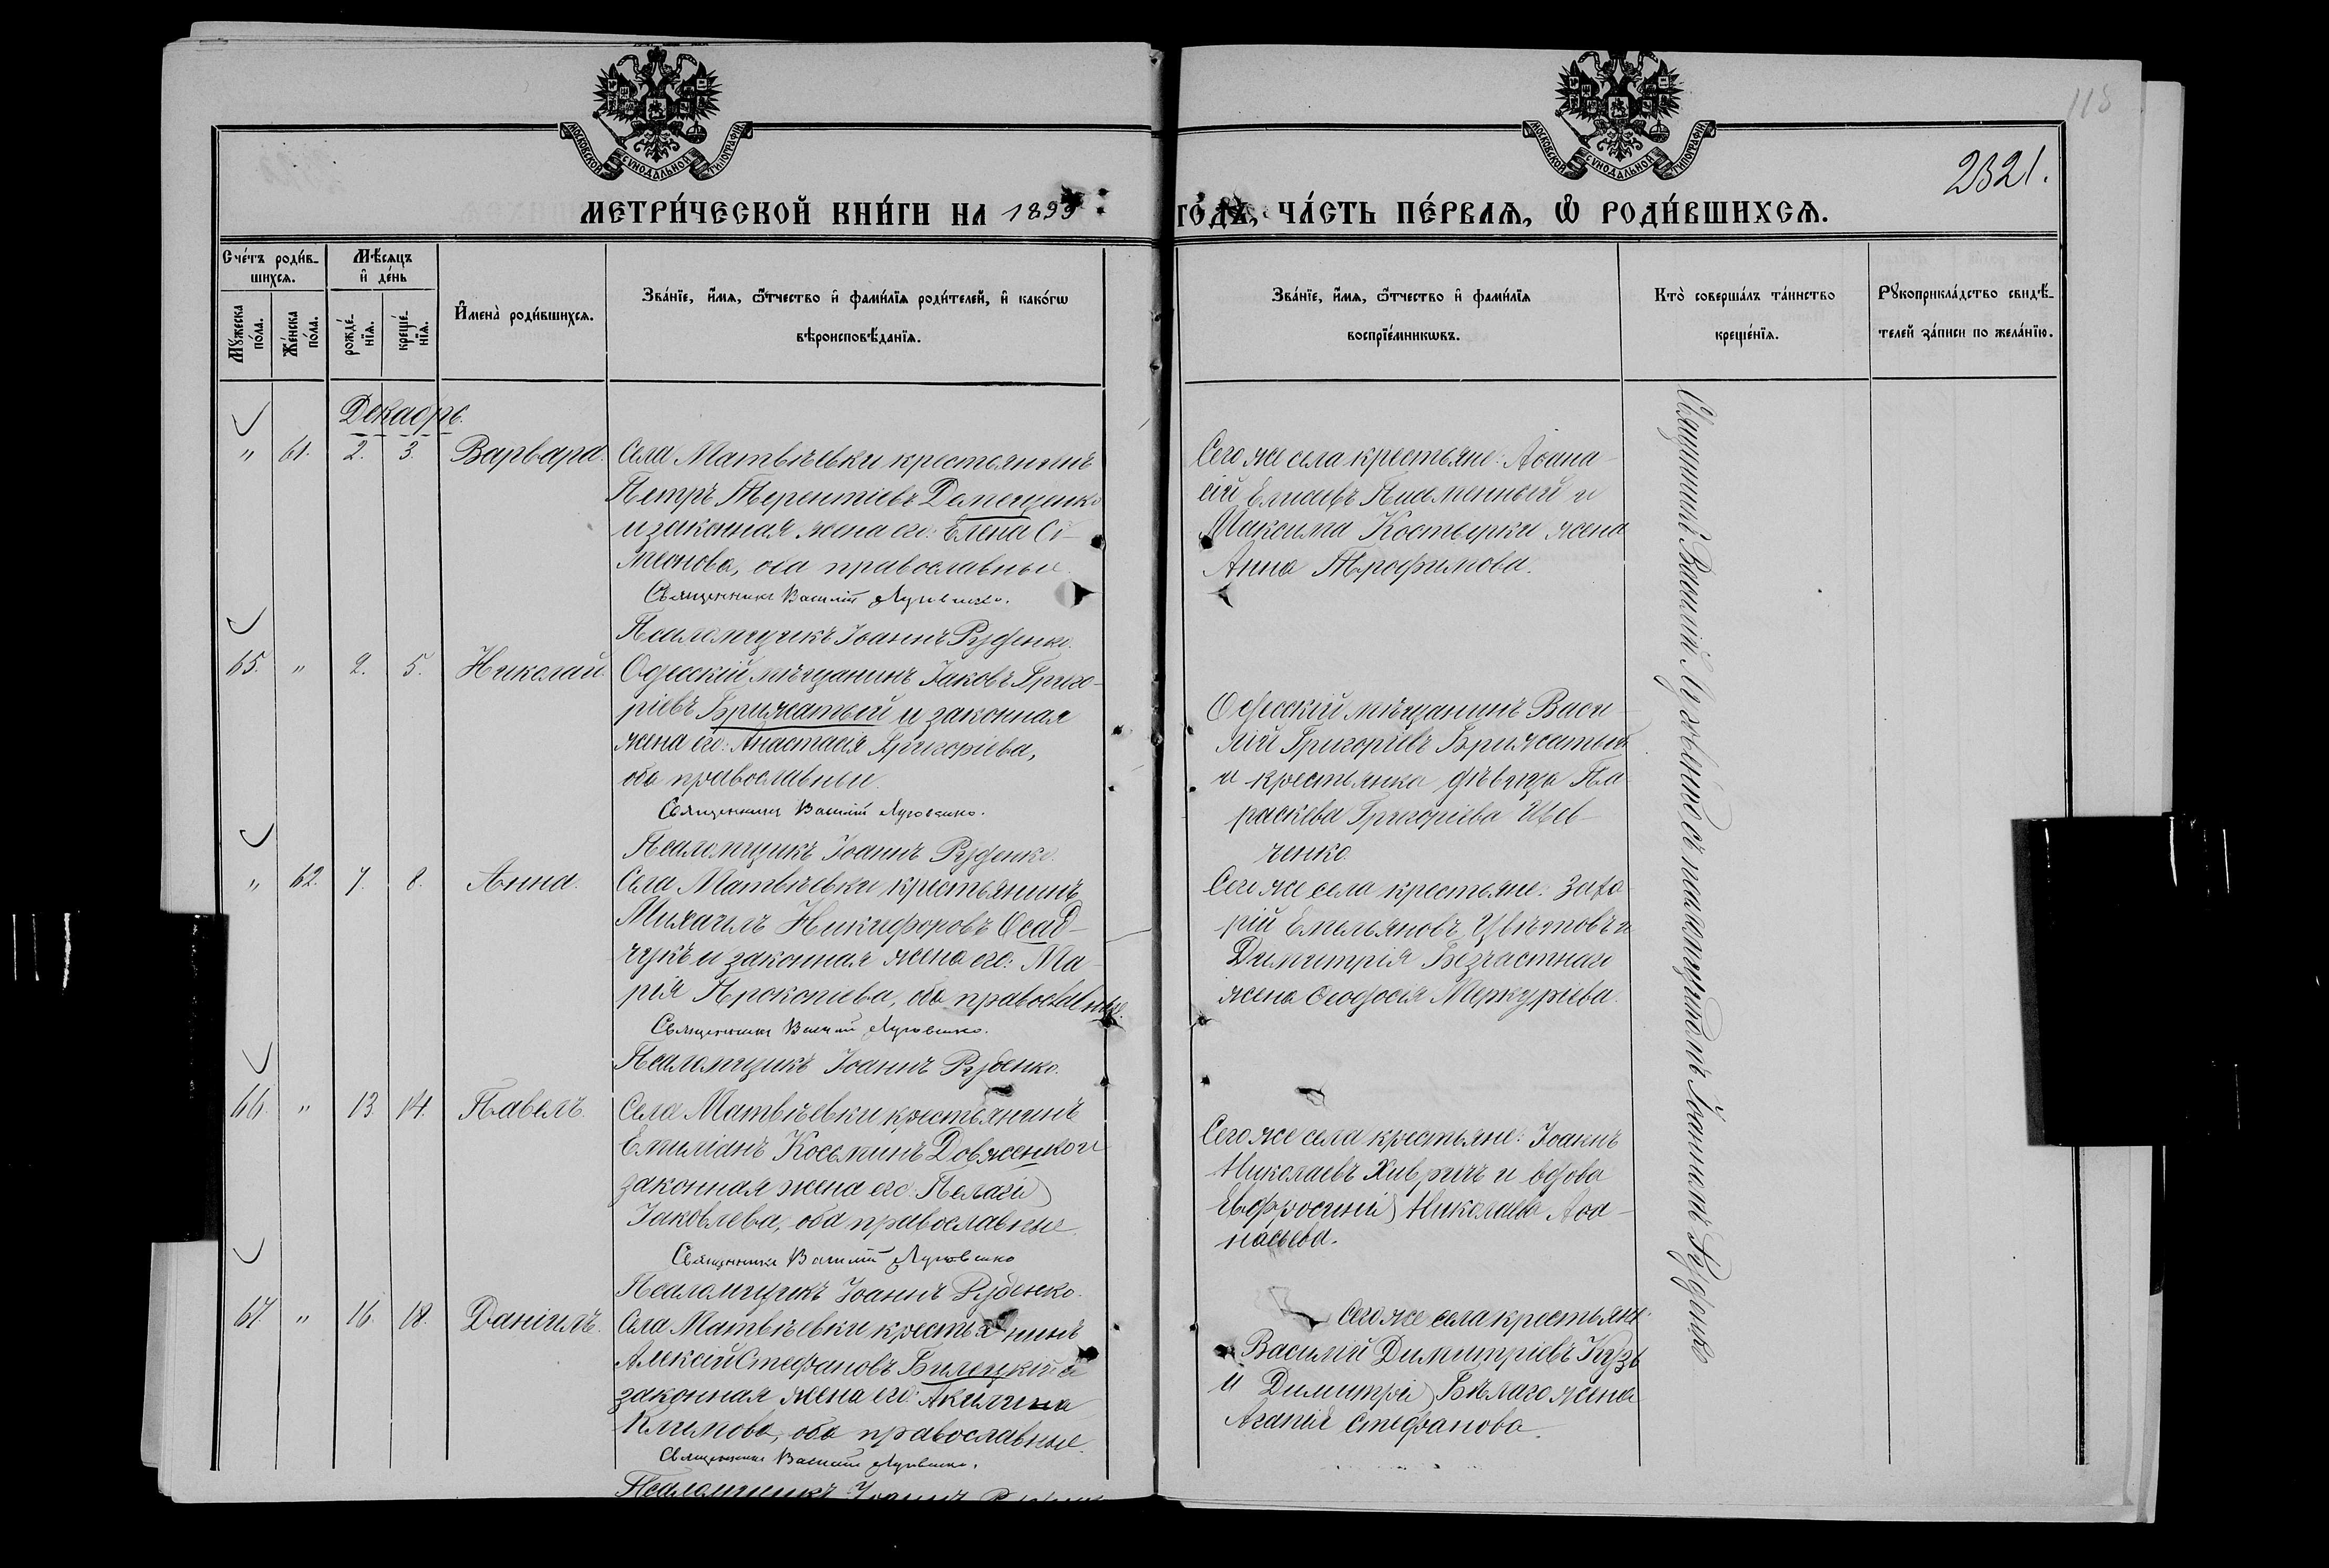 118
2321.
МОСКОВСКОЙ СУНОДАЛЬНОЙ ТИПОГРАФІИ
МОСКОВСКОЙ СУНОДАЛЬНОЙ ТИПОГРАФІИ
МЕТРИ́ЧЕСКОЙ КНИ́ГИ НА 1899
ГО́ДЪ, ЧА́СТЬ ПЕ́РВАѦ, Ѡ РОДИ́ВШИХСѦ.
Сче́тъ роди́в-
шихсѧ.
Мѣ́сяцъ
и҆ де́нь
Мꙋжеска
по́ла.
Же́нска
по́ла.
рожде́-
нїѧ.
креще́-
нїѧ.
И҆мена̀ роди́вшихсѧ.
Зва́нїе, и҆́мѧ, ѻ҆́тчество и҆ фами́лїѧ роди́телей, и҆ како́гѡ
вѣроисповѣ́данїѧ.
Зва́нїе, и҆́мѧ, ѻ҆́тчество и҆ фами́лїѧ
воспрїе́мникѡвъ.
Кто̀ соверша́лъ та́инство
креще́нїѧ.
Рꙋкоприкла́дство свидѣ́-
телей за́писи по жела́нїю.
Декабрь.
" 61. 2. 3. Варвара.
Села Матвѣевки крестьянинъ
Петръ Терентіевъ
и законная жена его: Елена Сѵ-
меонова, оба православные
Священникъ Василій Луговенко.
Псаломщикъ Іоаннъ Руденко.
Сего же села крестьяне: Аѳана-
сій Елисеевъ Письменный и
Максима Костырки жена
Анна Трофимова.
65. " 2. 5. Николай.
Одесскій мѣщанинъ Іаковъ Григо-
ріевъ Брижатый и законная
жена его: Анастасія Григоріева,
оба православные.
Священникъ Василій Луговенко.
Псаломщикъ Іоаннъ Руденко.
Одесскій мѣщанинъ Васи-
лій Григоріевъ Брижатый
и крестьянка дѣвица Па-
раскева Григоріева Шев-
ченко.
" 62. 7. 8. Анна.
Села Матвѣевки крестьянинъ
Михаилъ Никифоровъ Осад-
чукъ и законная жена его: Ма-
рія Прокопіева, оба православные.
Священникъ Василій Луговенко.
Псаломщикъ Іоаннъ Руденко.
Сего же села крестьяне: Заха-
рій Емельяновъ Цвѣтковъ и
Димитрія Безчастнаго
жена Ѳеодосія Меркуріева.
66. " 13. 14. Павелъ.
Села Матвѣевки крестьянинъ
Емиліанъ Косьминъ Довженко и
законная жена его: Пелагія
Іаковлева, оба православные
Священникъ Василій Луговенко
Псаломщикъ Іоаннъ Руденко.
Сего же села крестьяне: Іоаннъ
Николаевъ Хивричъ и вдова
Евфросинія Николаева Аѳа-
насьева.
67. " 16. 18. Даніилъ.
Села Матвѣевки крестьянинъ
Алексій Стефановъ Билецкій и
законная жена его: Акилина
Климова, оба православные.
Священникъ Василій Луговенко.
Псаломщикъ Іоаннъ Руденко
Сего же села крестьяне:
Василій Димитріевъ
и Димитрія Бѣлаго жена
Агапія Стефанова.
Священникъ Василій Луговенко съ псаломщикомъ Іоанномъ Руденко